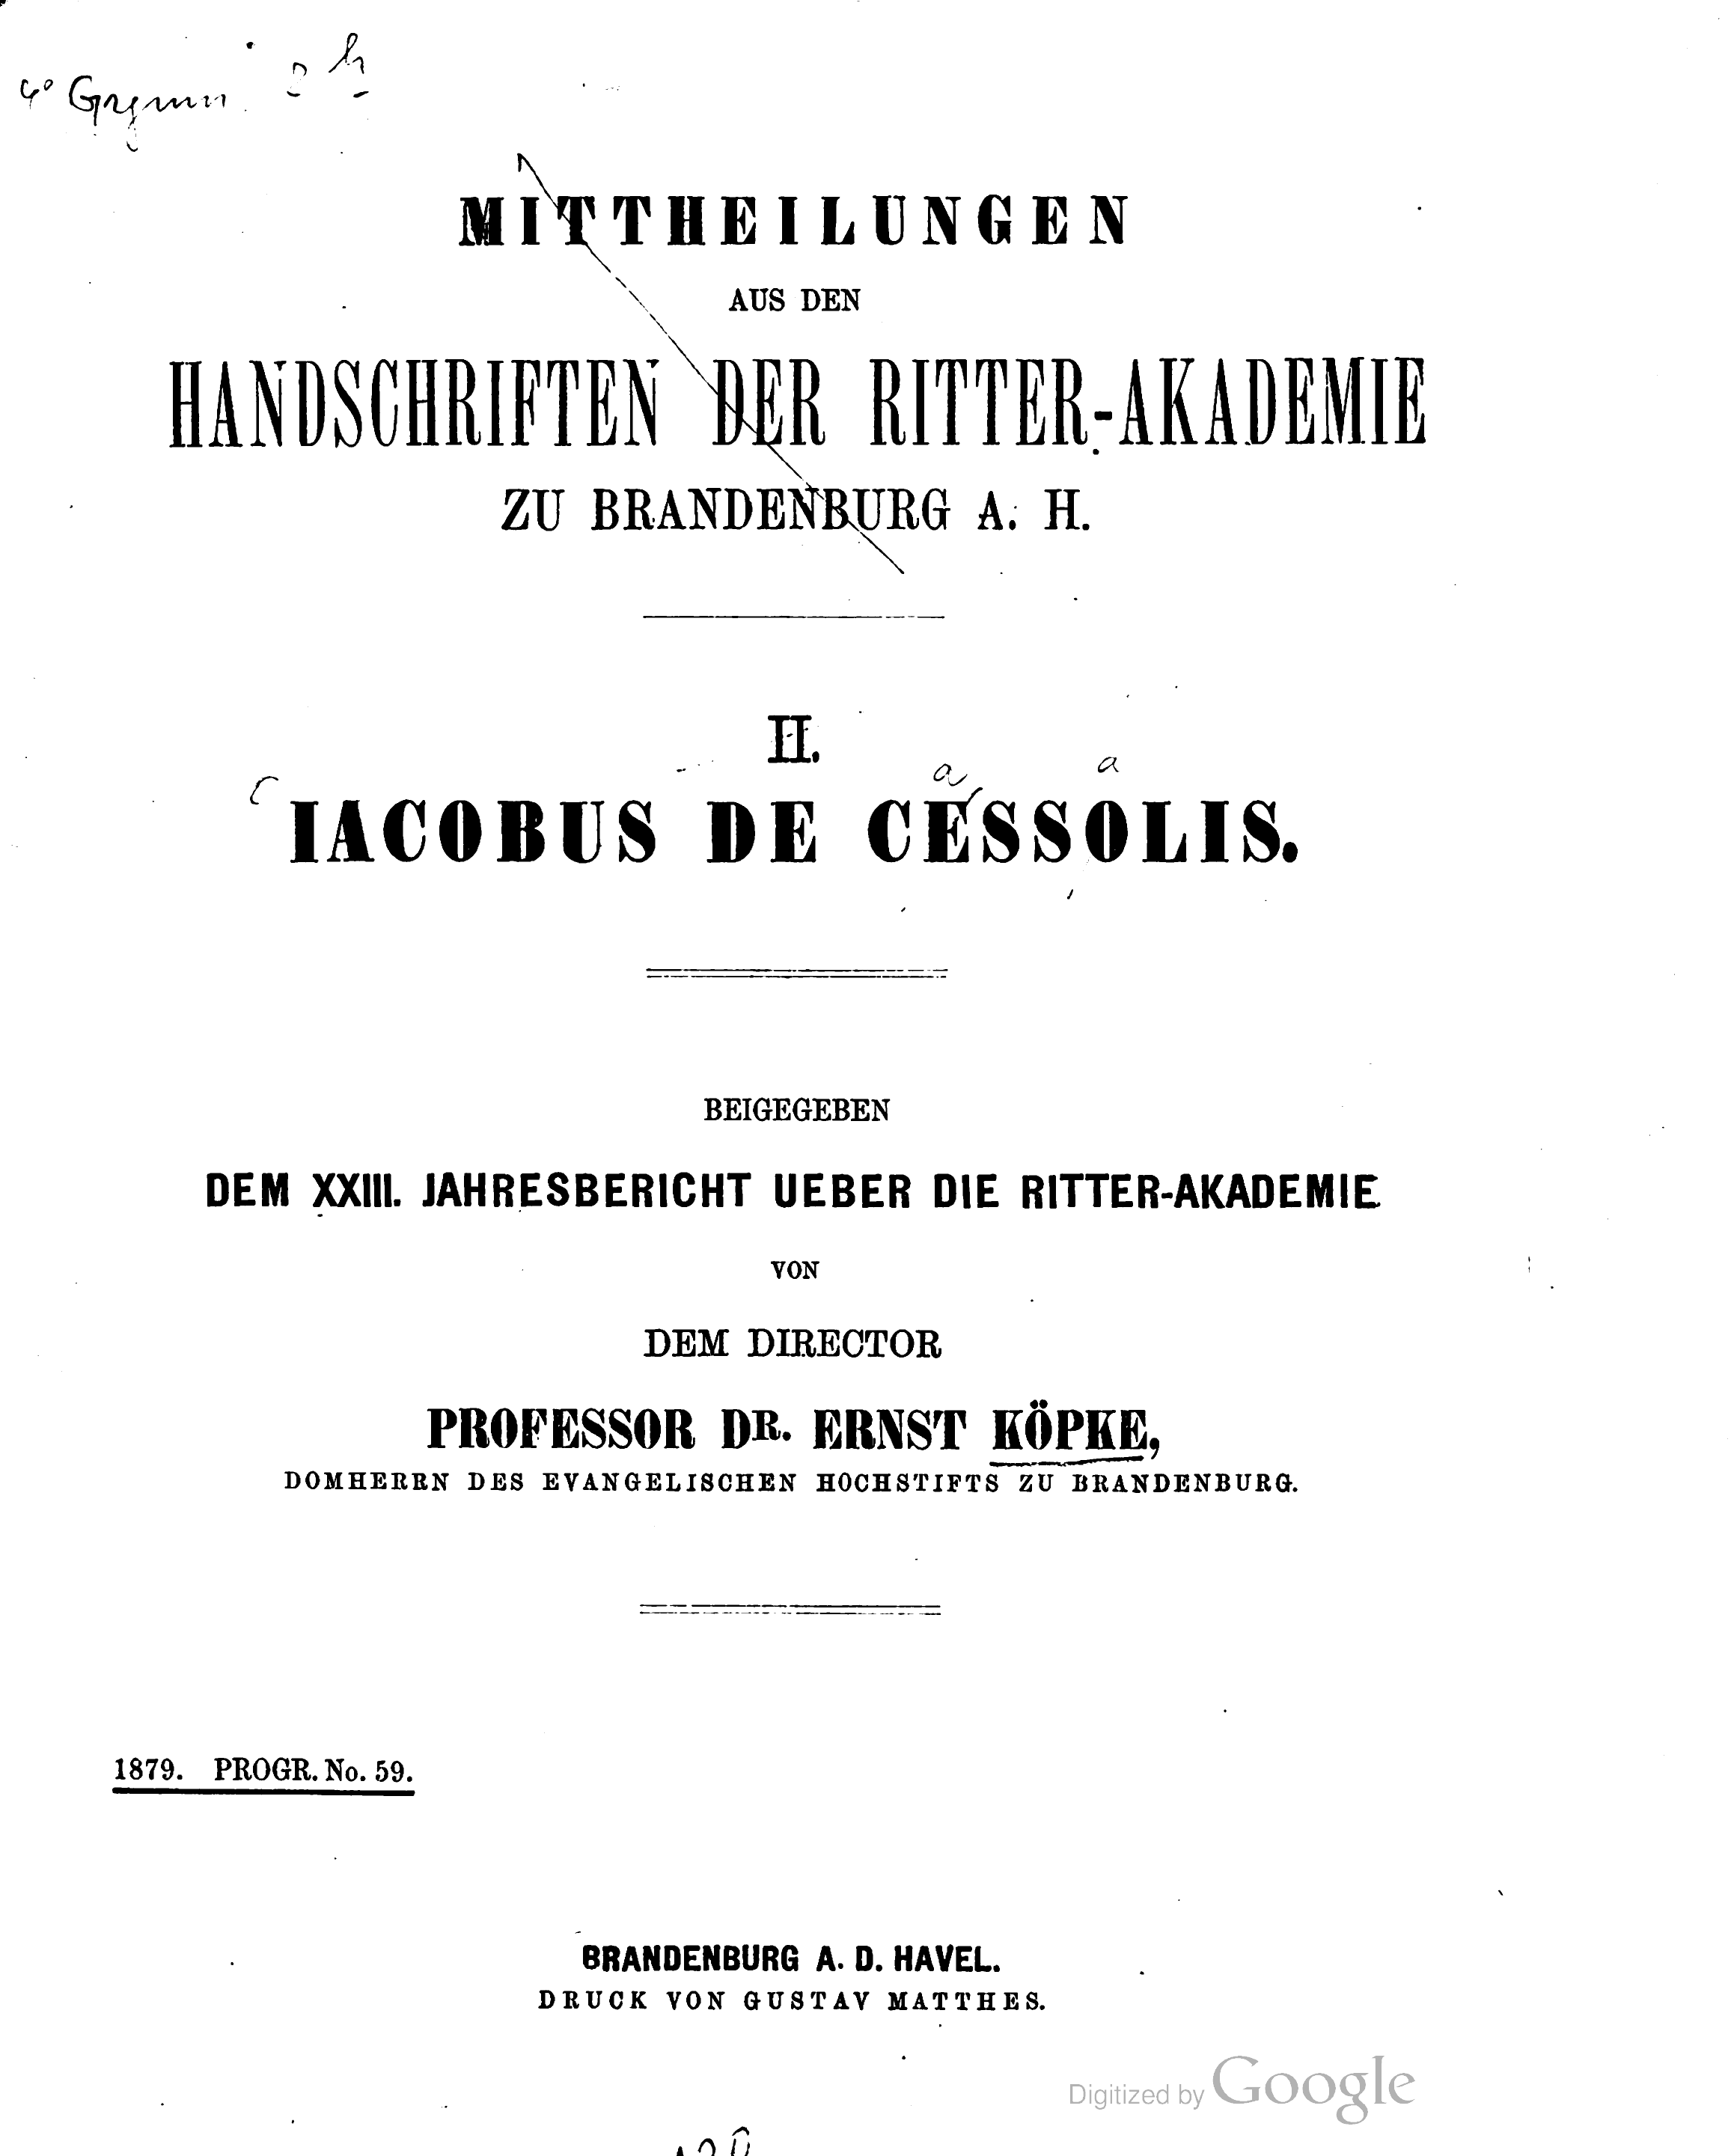 MITTHEILUNGEN
AUS DEN
HANDSCHRIFTEN DER RITTER-AKADEMIE
ZU BRANDENBURG A. H.
II.
a a
IACOBUS DE CESSOLIS.
BEIGEGEBEN
DEM XXIII. JAHRESBERICHT UEBER DIE RITTER-AKADEMIE
VON
DEM DIRECTOR
PROFESSOR DR. ERNST KÖPKE,
DOMHERRN DES EVANGELISCHEN HOCHSTIFTS ZU BRANDENBURG.
1879. PROGR. No. 59.
BRANDENBURG A. D. HAVEL.
DRUCK VON GUSTAV MATTHES.
Digitized by Google